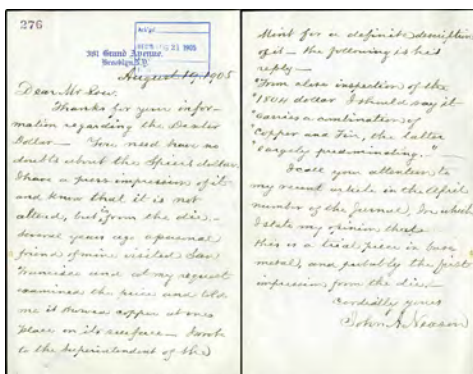 276
381 Grand Avenue.
Brooklyn, N.Y.
21 1905
August 19, 1905
Dear Mr Low.
Thanks for your infor-
mation regarding the Dexter
Dollar — You need have no
doubts about the Spiers dollar
I have a press impression of it
and know that it is not
altered, but from the die. —
Several years ago a personal
friend of mine visited San
Francisco and at my request
examined the piece and told
me it showed copper at one
place on its surface — I wrote
to the Superintendent of the
Mint for a definite description
of it — the following is his
reply —
"From close inspection of the
"1804 dollar I should say it
"carries a combination of
"Copper and Tin, the latter
"largely predominating." —
I call your attention to
my recent article in the April
number of the Journal, In which
I state my opinion that
this is a trial piece in base
metal, and probably the first
impression from the die —
Cordially yours
John A. Nexsen